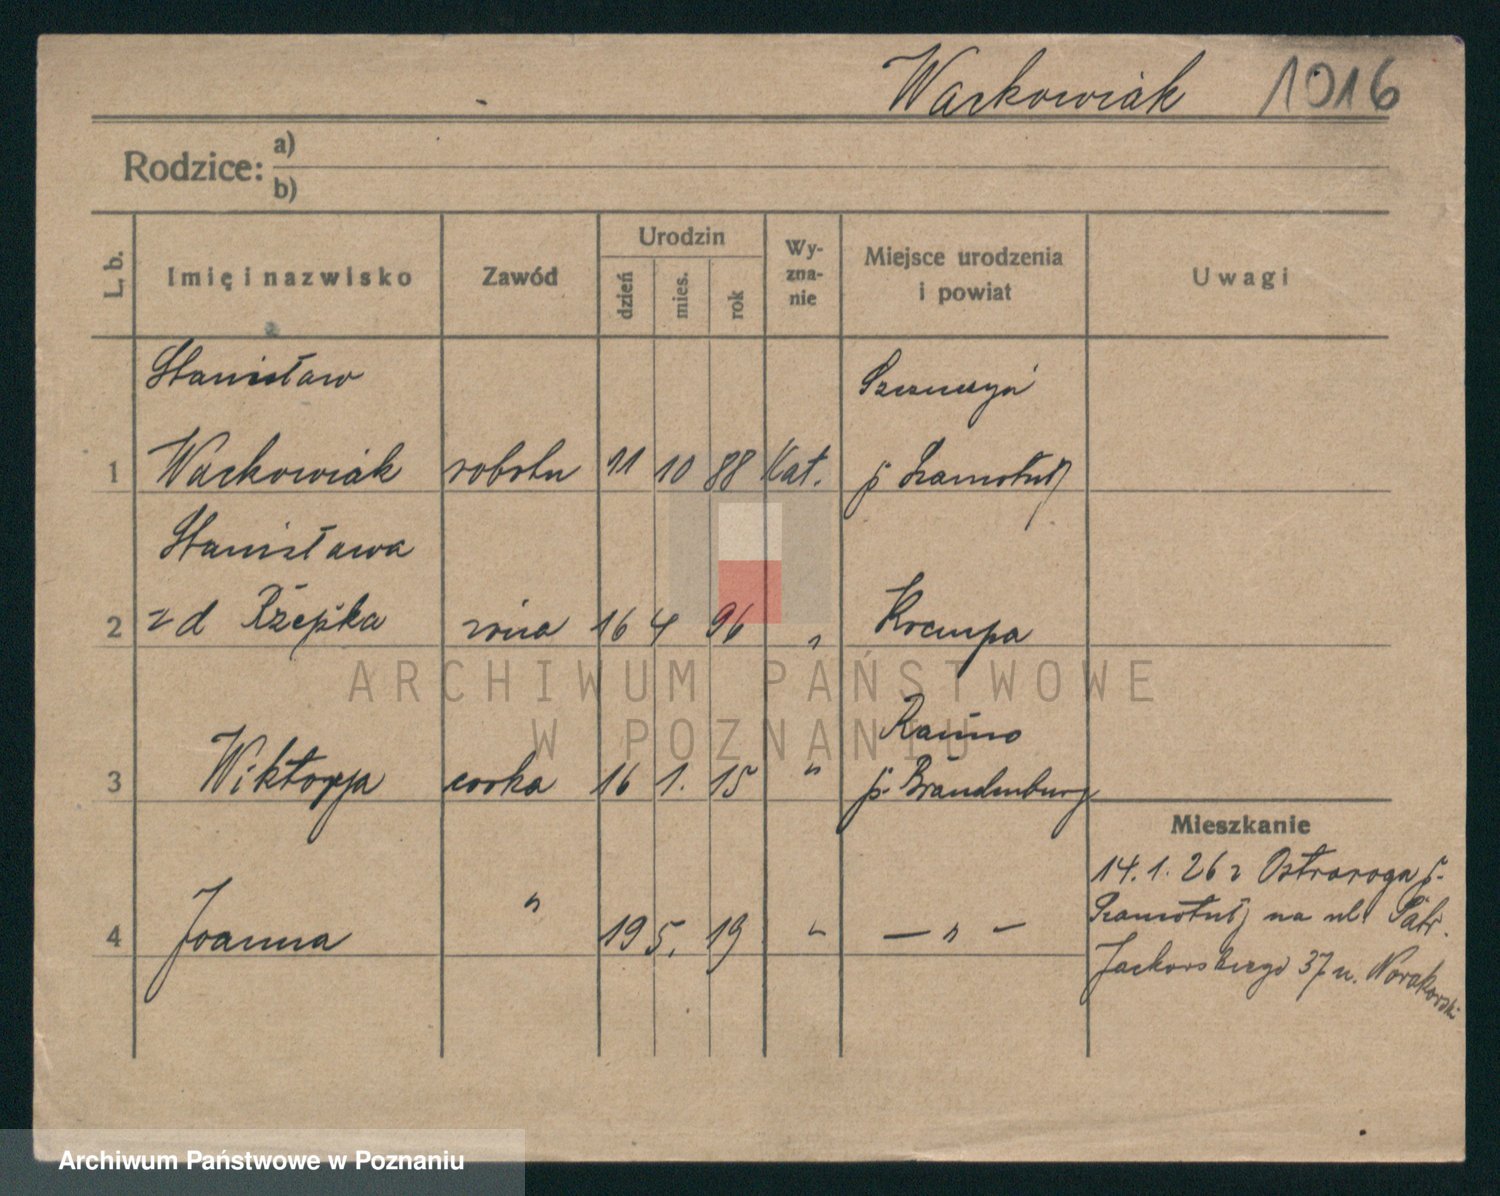 Wackowiak 1016
Rodzice: a)
b)
L. b. Imię i nazwisko Zawód Urodzin dzień mies. rok Wy-zna-nie Miejsce urodzenia i powiat Uwagi
Stanisław
1 Wackowiak robotn 11 10 88 Kat. p Szamotuły
Stanisława
2 z d Rzepka żona 16 4 96 "
Rauno
3 Wiktorja corka 16 1. 15 " p. Brandenburg
Mieszkanie
14. 1. 26 z Ostroroga p.
4 Joanna " 19 5. 19 " — " —
Szamotuły na ul.
37 u. Nowakowski
ARCHIWUM PAŃSTWOWE
W POZNANIU
Archiwum Państwowe w Poznaniu